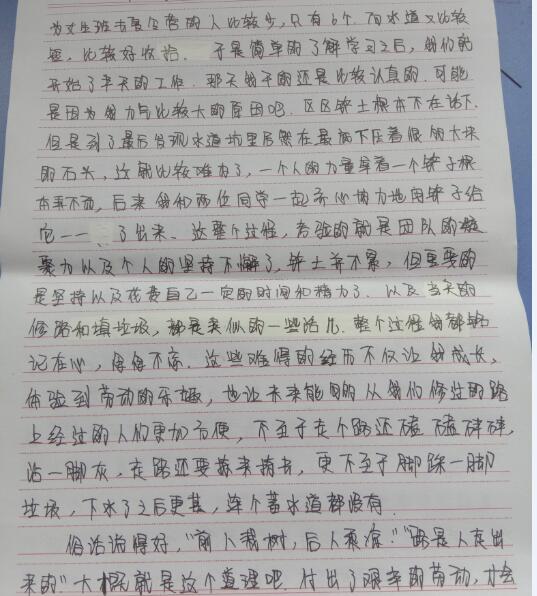 为女生班去复合营的人比较少,只有6个.而水道又比较
短,比较好收拾.于是简单的了解学习之后,我们就
开始了半天的工作.那天我干的还是比较认真的.可能
是因为我力气比较大的原因吧.区区铲土根本不在话下.
但是到了最后发现水道坑里居然在最底下压着很多大块
的石头,这就比较难办了,一个人的力量拿着一个铲子根
本弄不动,后来我和两位同学一起齐心协力地用铲子给
它一一了出来、这整个过程,考验的就是团队的凝
聚力以及个人的坚持不懈了,铲土并不累,但更要的
是坚持以及花费自己一定的时间和精力了.以及当天的
修路和填垃圾,都是类似的一些活儿.整个过程我都铭
记在心,念念不忘.这些难得的经历不仅让我成长,
体验到劳动的乐趣,也让未来能用的从我们修过的路
上经过的人们更加方便,不至于走个路还磕磕碰碰,
沾一脚灰,走路还要拐来拐去,更不至于脚踩一脚
垃圾,下水了之后更甚,连个蓄水道都没有.
俗话说得好,"前人栽树,后人乘凉.""路是人走出
来的"大概就是这个道理吧.付出了艰辛的劳动,才会